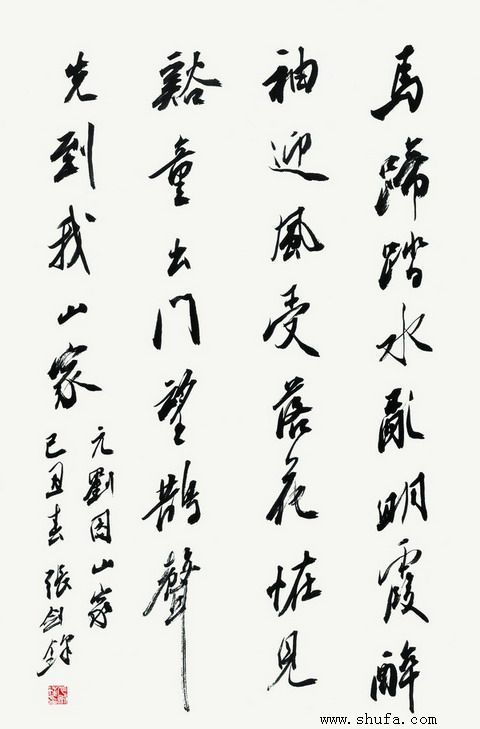 馬蹄踏水亂明霞醉
袖迎風受落花恠見
谿童出門望鵲聲
先到我山家
元劉因山家
己丑春 張剑
www.shufa.com